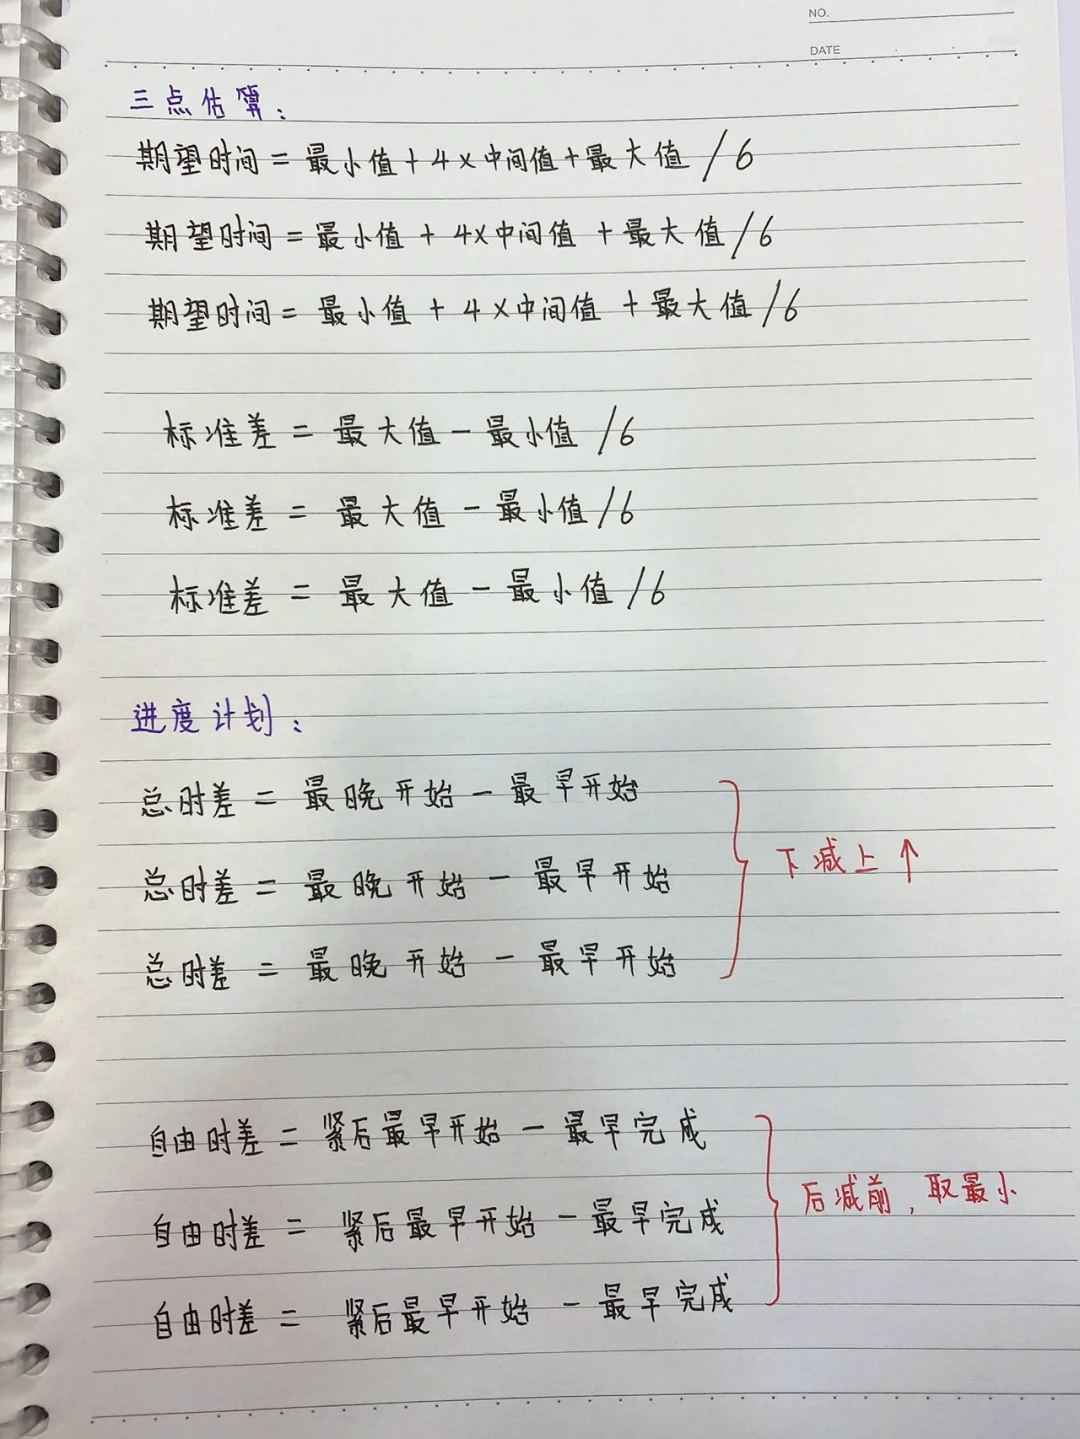 NO.
DATE
三点估算:
期望时间=最小值+4×中间值+最大值/6
期望时间=最小值+4×中间值+最大值/6
期望时间=最小值+4×中间值+最大值/6
标准差=最大值-最小值/6
标准差=最大值-最小值/6
标准差=最大值-最小值/6
进度计划:
总时差=最晚开始-最早开始
总时差=最晚开始-最早开始
总时差=最晚开始-最早开始
下减上↑
自由时差=紧后最早开始-最早完成
自由时差=紧后最早开始-最早完成
自由时差=紧后最早开始-最早完成
后减前,取最小